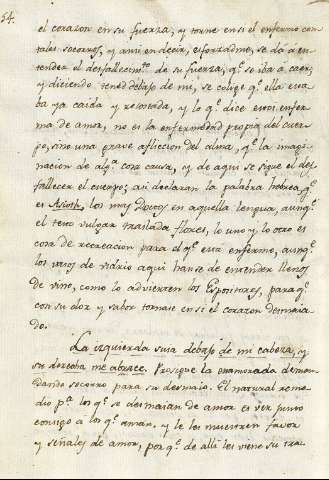 54.
el corazon en su fuerza, y torne en si el enfermo con
tales socorros, y ansi en decir, esforzadme, se da a en-
tender el desfallecim.to de su fuerza, q.e se iba à caer,
y diciendo tened debajo de mi, se colige q.e ella esta-
ba ya caida y rematada, y lo q.e dice estoi enfer-
ma de amor, no es la enfermedad propia del cuer-
po, sino una grave afliccion del alma, q.e la imagi-
nacion de alg.a cosa causa, y de aqui se sigue el des-
fallecer el cuerpo; asi declaran la palabra hebrea, q.e
es los muy Doctos en aquella lengua, aunq.e
el texto vulgar traslada flores, lo uno y lo otro es
cosa de recreacion para el q.e esta enfermo, aunq.e
los vasos de vidrio aqui hanse de entender llenos
de vino, como lo advierten los Expositores, para q.e
con su olor y sabor tornase en si el corazon desmaia-
do.
La izquierda suia debajo de mi cabeza, y
su derecha me abrace. Prosigue la enamorada deman-
dando socorro para su desmaio. El natural reme-
dio p.a los q.e se desmaian de amor es ver junto
consigo a los q.e aman, y q.e les muestren favor
y señales de amor, porq.e de alli les viene su tra-